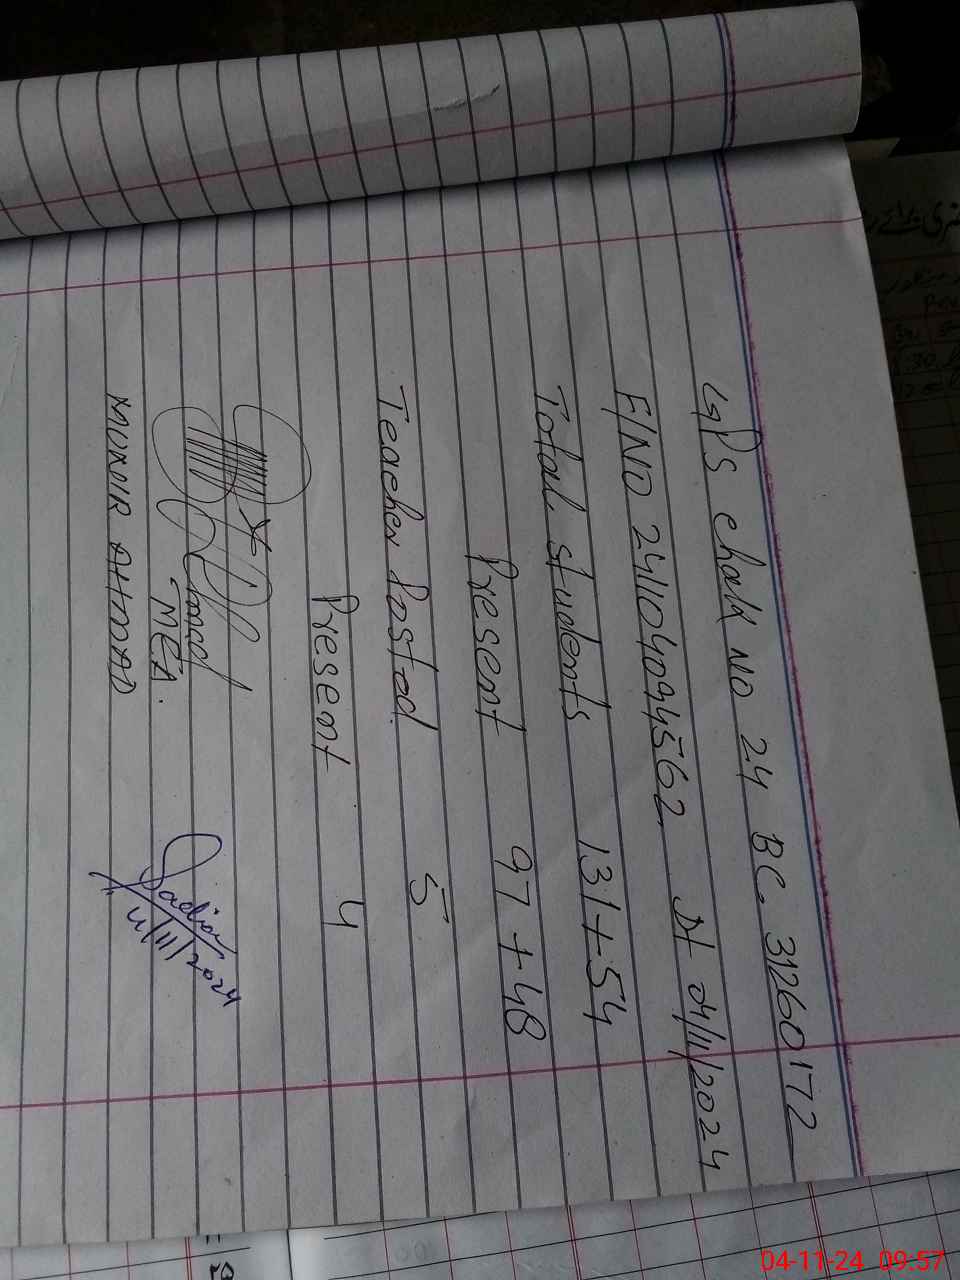 GPS chak NO 24 BC. 31260172
F/NO 241104094562 Dt 04/11/2024
Total students 131+54
Present 97+48
Teacher Posted 5
Present 4
MEA.
MUNIR AHMAD
Sadia
4/11/2024
04-11-24 09:57